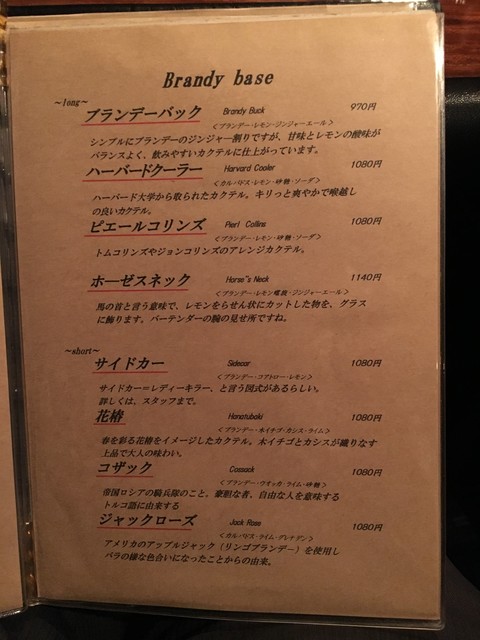 Brandy base
~long~
ブランデーバック Brandy Buck 970円
＜ブランデー・レモン・ジンジャーエール＞
シンプルにブランデーのジンジャー割りですが、甘味とレモンの酸味が
バランスよく、飲みやすいカクテルに仕上がっています。
ハーバードクーラー Harvard Cooler 1080円
＜カルバドス・レモン・砂糖・ソーダ＞
ハーバード大学から取られたカクテル。キリっと爽やかで喉越し
の良いカクテル。
ピエールコリンズ Pierl Collins 1080円
＜ブランデー・レモン・砂糖・ソーダ＞
トムコリンズやジョンコリンズのアレンジカクテル。
ホーゼスネック Horse"s Neck 1140円
＜ブランデー・レモン螺旋・ジンジャーエール＞
馬の首と言う意味で、レモンをらせん状にカットした物を、グラス
に飾ります。バーテンダーの腕の見せ所ですね。
~short~
サイドカー Sidecar 1080円
＜ブランデー・コアトロー・レモン＞
サイドカー＝レディーキラー、と言う図式があるらしい。
詳しくは、スタッフまで。
花椿 Hanatubaki 1080円
＜ブランデー・木イチゴ・カシス・ライム＞
春を彩る花椿をイメージしたカクテル。木イチゴとカシスが織りなす
上品で大人の味わい。
コザック Cossack 1080円
＜ブランデー・ウオッカ・ライム・砂糖＞
帝国ロシアの騎兵隊のこと。豪胆な者、自由な人を意味する
トルコ語に由来する
ジャックローズ Jack Rose 1080円
＜カルバドス・ライム・グレナデン＞
アメリカのアップルジャック（リンゴブランデー）を使用し
バラの様な色合いになったことからの由来。